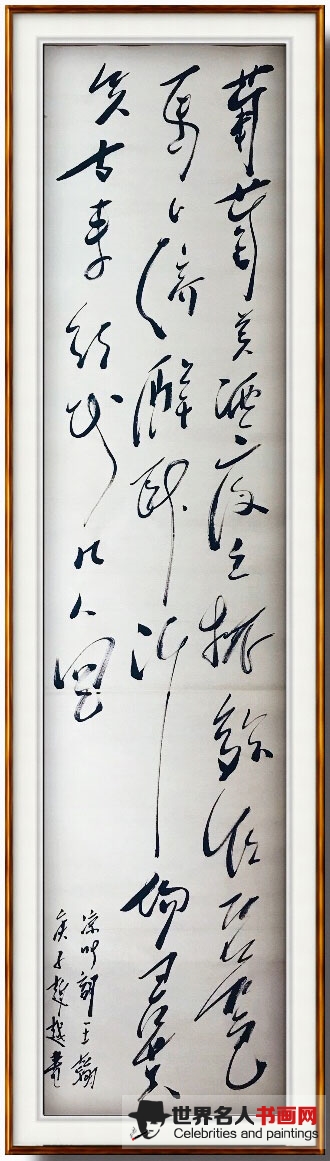 葡萄美酒夜光杯欲飲琵琶
馬上催醉臥沙場君莫
笑古來征戰幾人回
涼州詞王翰
庚子越書
世界名人书画网
Celebrities and paintings